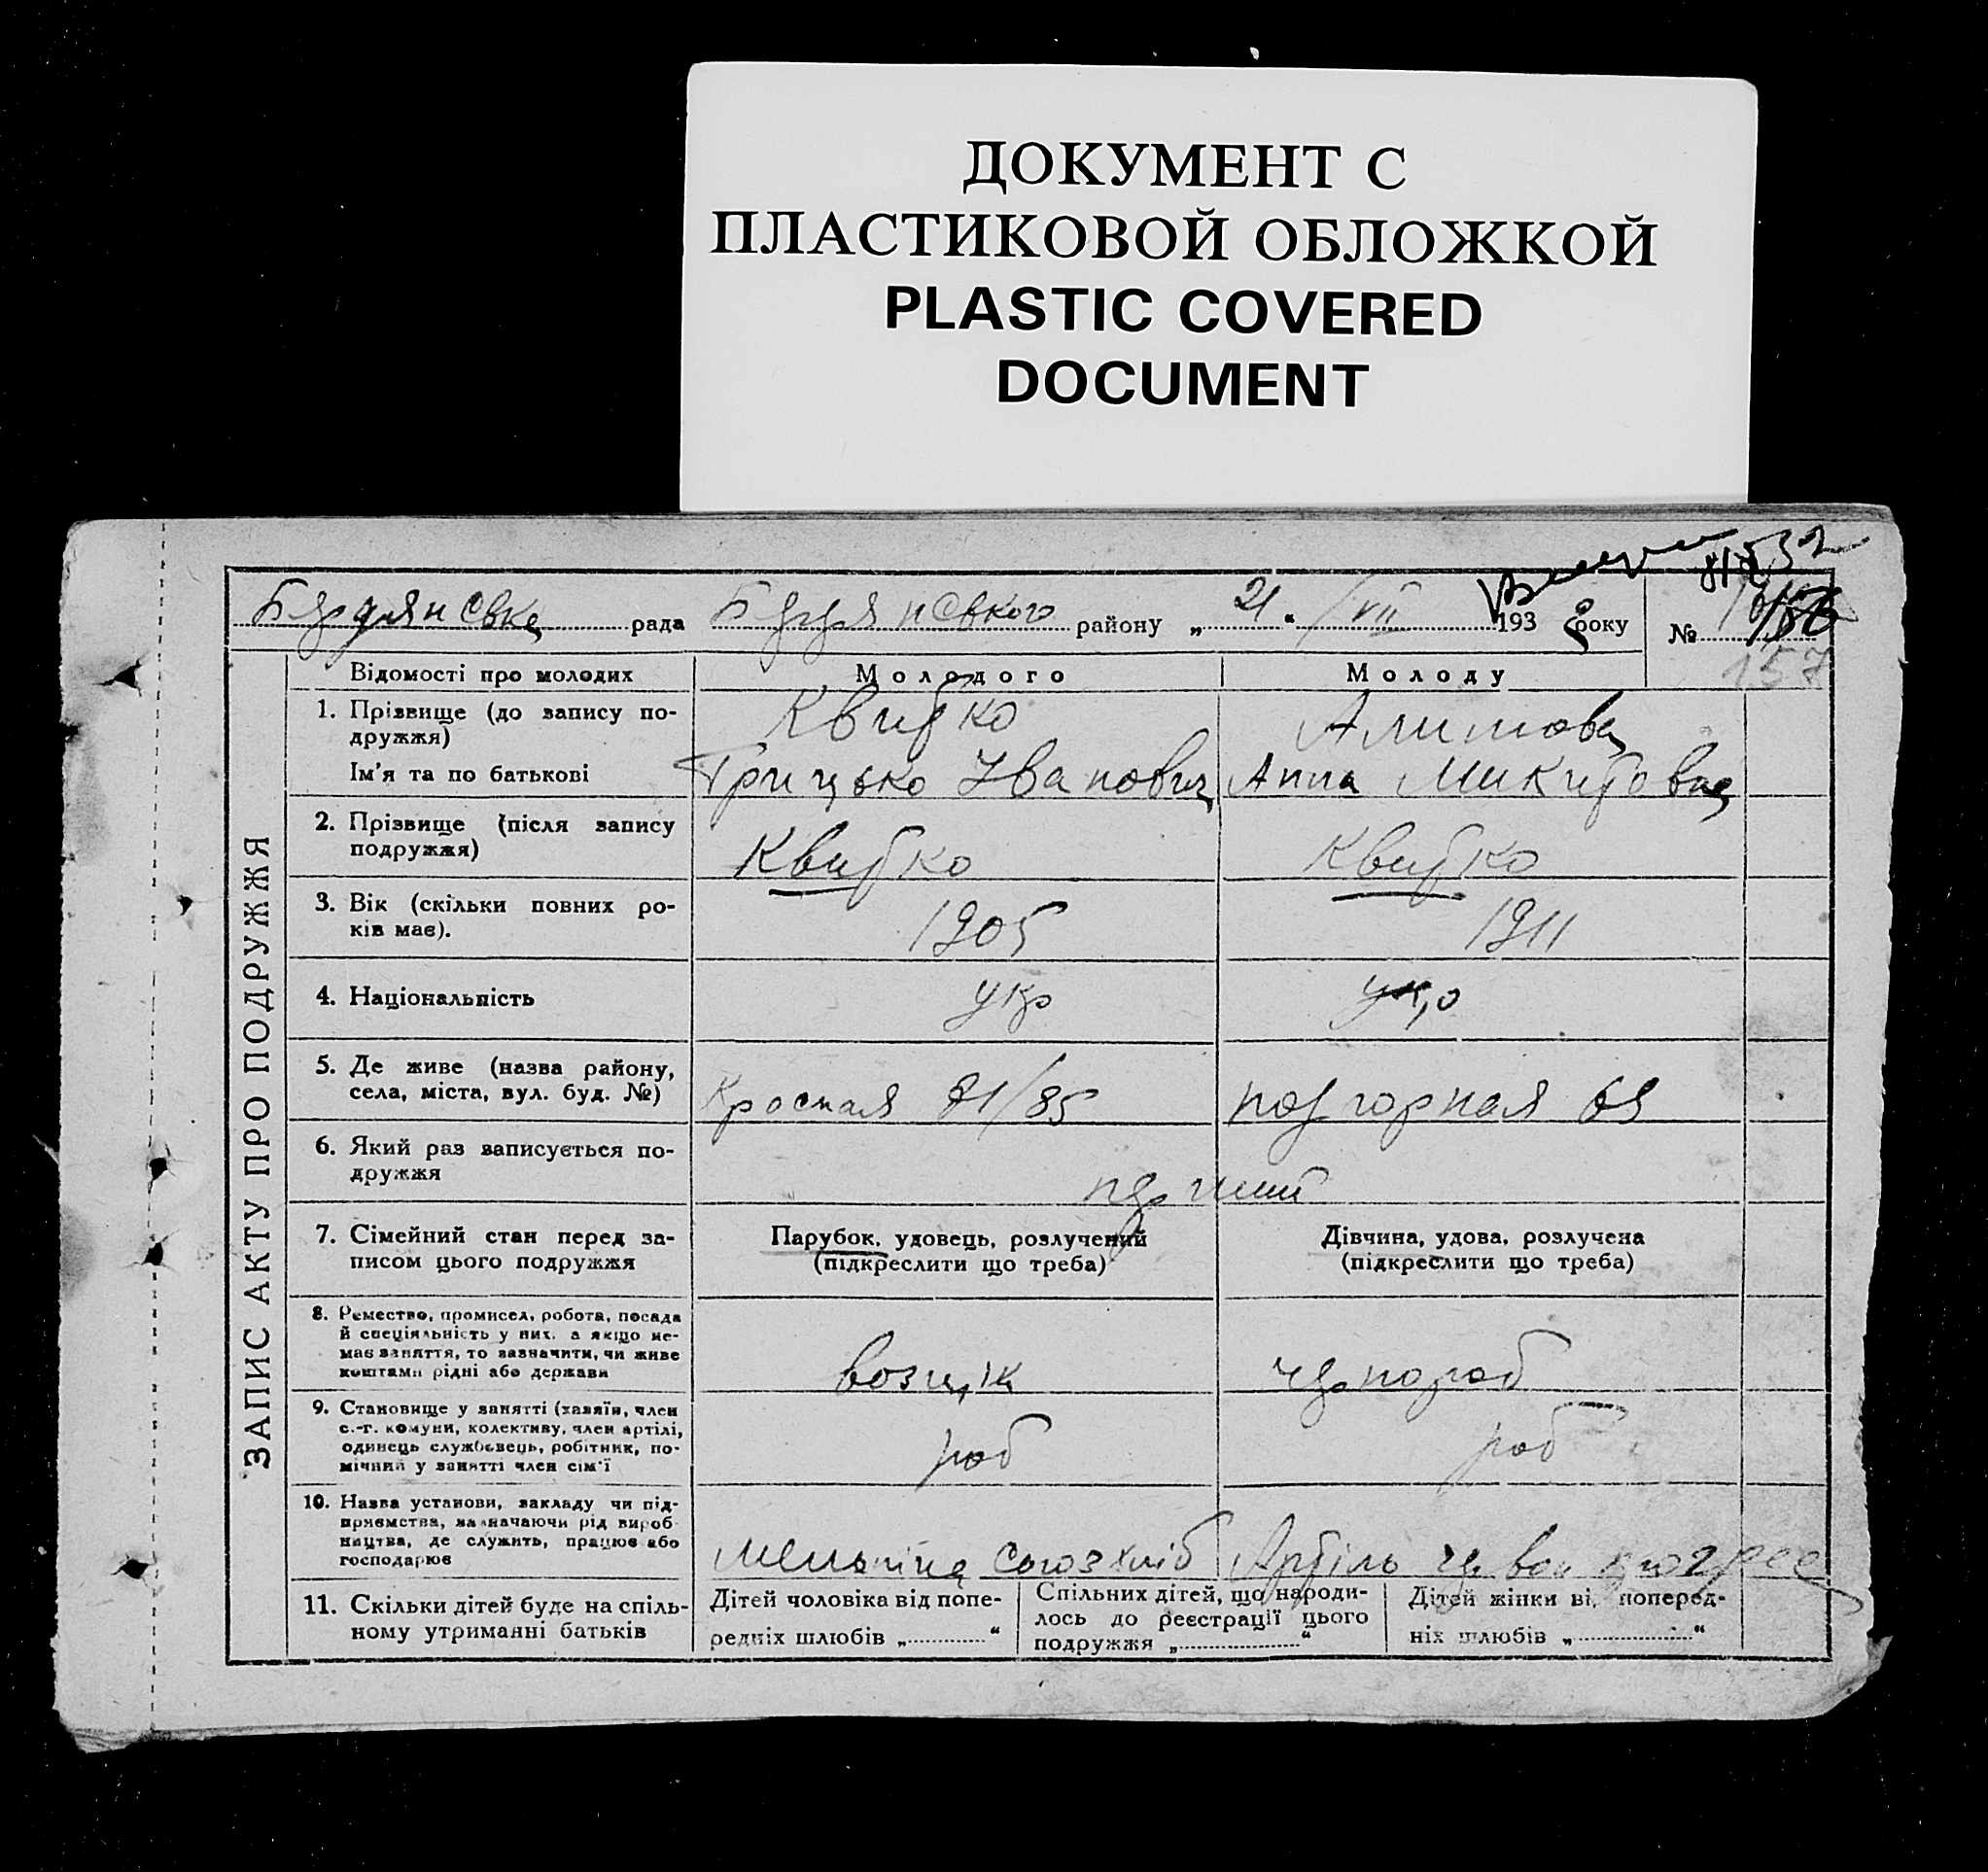 ДОКУМЕНТ С
ПЛАСТИКОВОЙ ОБЛОЖКОЙ
PLASTIC COVERED
DOCUMENT
Бердянська рада Бердянського району „21“ /VII 193 року №
157
ЗАПИС АКТУ ПРО ПОДРУЖЖЯ
Відомості про молодих Молодого Молоду
1. Прізвище (до запису по-
дружжя) Квитко Алимова
Ім’я та по батькові Грицько Іванович Анна Микитовна
2. Прізвище (після запису
подружжя) Квитко Квитко
3. Вік (скільки повних ро-
ків має). 1905 1911
4. Національність укр укр
5. Де живе (назва району,
села, міста, вул. буд. №) Красная 81/85 подгорная 69
6. Який раз записується по-
дружжя перший
7. Сімейний стан перед за-
писом цього подружжя
Парубок, удовець, розлучений
(підкреслити що треба)
Дівчина, удова, розлучена
(підкреслити що треба)
8. Ремество, промисел, робота, посада
й спеціяльність у них, а якщо не-
має заняття, то зазначити, чи живе
коштами рідні або держави
возчік чернороб
9. Становище у занятті (хазяїн, член
с.-г. комуни, колективу, член артілі,
одинець службовець, робітник, по-
мічний у занятті член сім’ї
роб роб
10. Назва установи, закладу чи під-
приємства, зазначаючи рід вироб-
ництва, де служить, працює або
господарює
Мельница Союзхліб Артіль черван прогрес
11. Скільки дітей буде на спіль-
ному утриманні батьків
Дітей чоловіка від попе-
редніх шлюбів „ “
Спільних дітей, що народи-
лось до реєстрації цього
подружжя „ “
Дітей жінки ві, поперед-
ніх шлюбів „ “